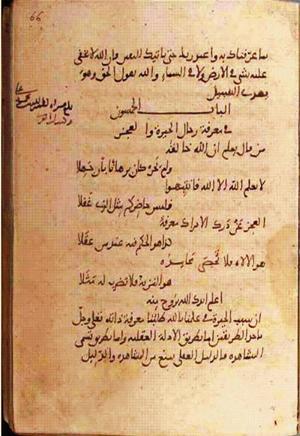 66
ما عرفناك به واعبد ربك حتى ياتيك اليقين فان الله لا يخفى
عليه شي في الارض ولا في السماء والله يقول الحق وهو
يهدي السبيل
بلغ قراءة
الباب الخمسون
في معرفة رجال الحيرة والعجز
من قال يعلم ان الله خالقه
ولم يحر كان برهانا بأن جهلا
لا يعلم الله الا الله فانتبهوا
فليس حاضركم مثل الذي غفلا
العجز عن درك الادراك معرفة
كذا هو الحكم فيه عند من عقلا
هو الاله فلا تحصى محامده
هو النزيه فلا تضرب له مثلا
اعلم ايدك الله بروح منه
ان سبب الحيرة في علمنا بالله طلبنا معرفة ذاته تعلى وجل
باحد الطريقين اما بطريق الادلة العقلية واما بطريق تسمى
المشاهدة فالدليل العقلي يمنع من المشاهدة والدليل